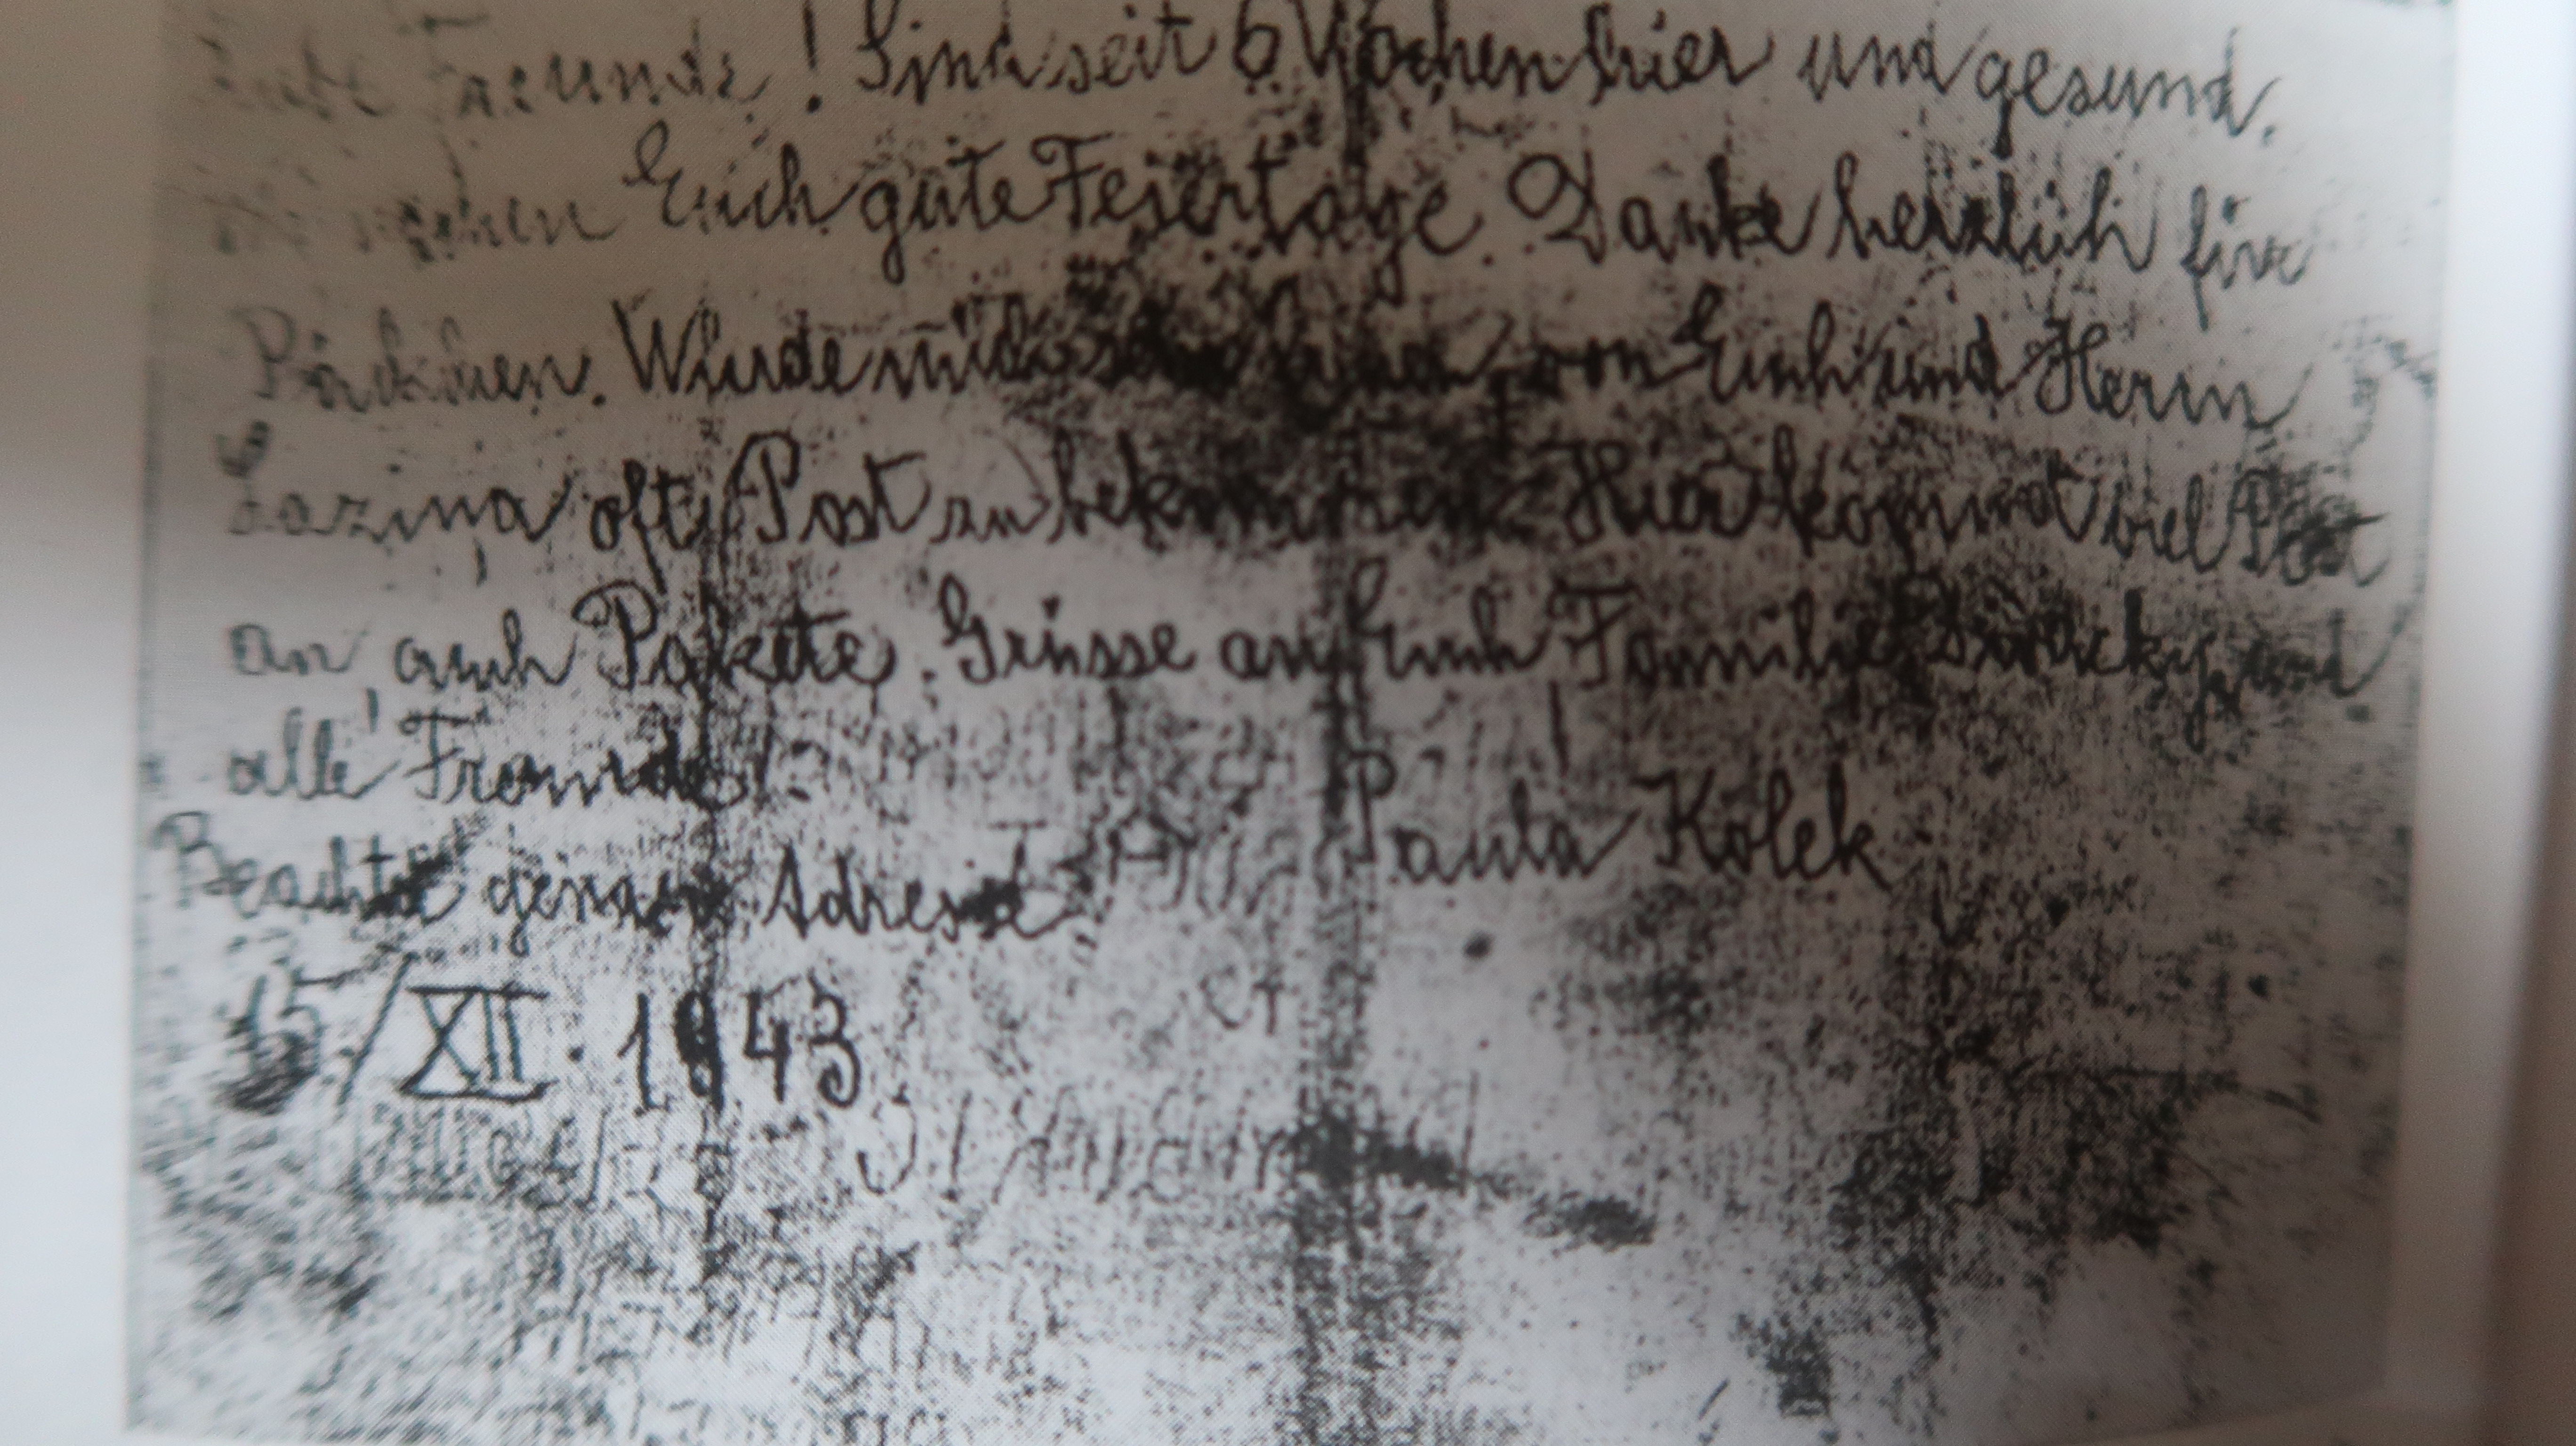 Freunde! Sind seit 6 Wochen hier und gesund.
Euch gute Feiertage. Danke herzlich für
Päckchen. Würde mich von Euch und Herrn
Lazina oft Post zu Hier kommt viel Post
an auch Pakete. Grüsse an Familie und
alle Freunde! Paula Kolek
Beachtet genau Adresse
15./XII. 1943